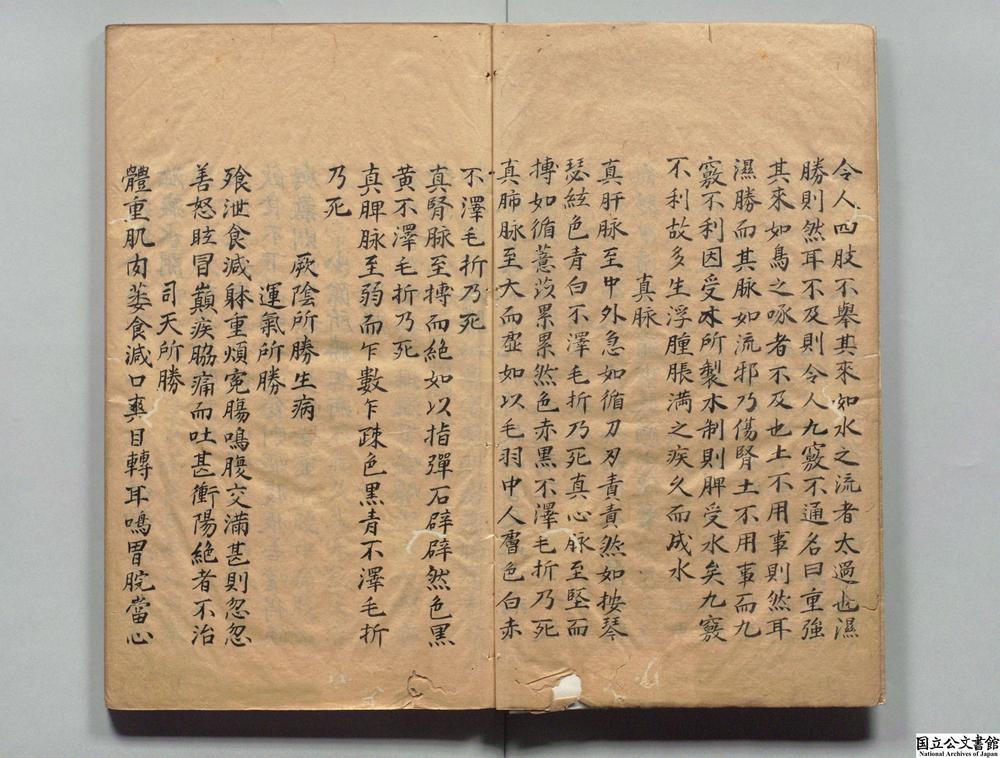 令人四肢不舉其來如水之流者太過也濕
勝則然耳不及則令人九竅不通名曰重強
其來如鳥之喙者不及也土不用事則然耳
濕勝而其脉如流邪乃傷腎土不用事而九
竅不利因受木所製木制則脾受水矣九竅
不利故多生浮腫脹満之疾久而成水
真脉
真肝脉至中外急如循刀刃責責然如按琴
瑟絃色青白不澤毛折乃死真心脉至堅而
摶如循薏苡累累然色赤黒不澤毛折乃死
真肺脉至大而虚如以毛羽中人膚色白赤
不澤毛折乃死
真腎脉至摶而絶如以指彈石辟辟然色黒
黄不澤毛折乃死
真脾脉至弱而乍數乍踈色黒青不澤毛折
乃死
厥陰所勝生病
運氣所勝
飱泄食減躰重煩寃膓鳴腹交滿甚則忽忽
善怒眩冒巔疾脇痛而吐甚衝陽絶者不治
司天所勝
體重肌肉萎食減口爽目轉耳鳴胃脘當心
国立公文書館
National Archives of Japan